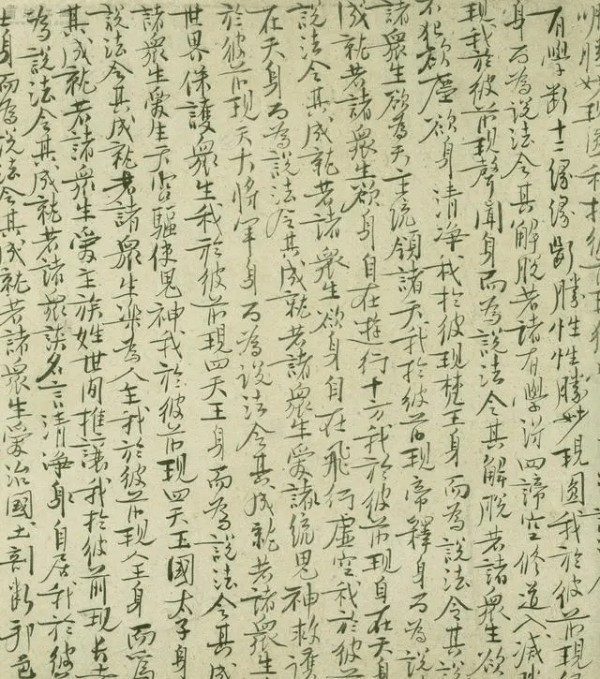 明勝妙現圓我於彼前現
有學斷十二緣緣斷勝性性勝妙現圓我於彼前現緣
身而為說法令其解脫若諸有學得四諦空修道入滅勝
現我於彼前現聲聞身而為說法令其解脫若諸衆生欲
不犯欲塵欲身清淨我於彼現梵王身而為說法令其
諸衆生欲為天主統領諸天我於彼前現帝釋身而為說
成就若諸衆生欲身自在遊行十方我於彼前現自在天
說法令其成就若諸衆生欲身自在飛行虛空我於彼前
在天身而為說法令其成就若諸衆生愛諸統鬼神救護
於彼前現天大將軍身而為說法令其成就若諸衆生
世界保護衆生我於彼前現四天王身而為說法令其成
諸衆生愛生天宮驅使鬼神我於彼前現四天王國太子身
說法令其成就若諸衆生樂為人王我於彼前現人王身而為
其成就若諸衆生愛主族姓世間推讓我於彼前現長者
為說法令其成就若諸衆談名言清淨身自居我於彼
士身而為說法令其成就若諸衆生愛治國土剖斷邦邑